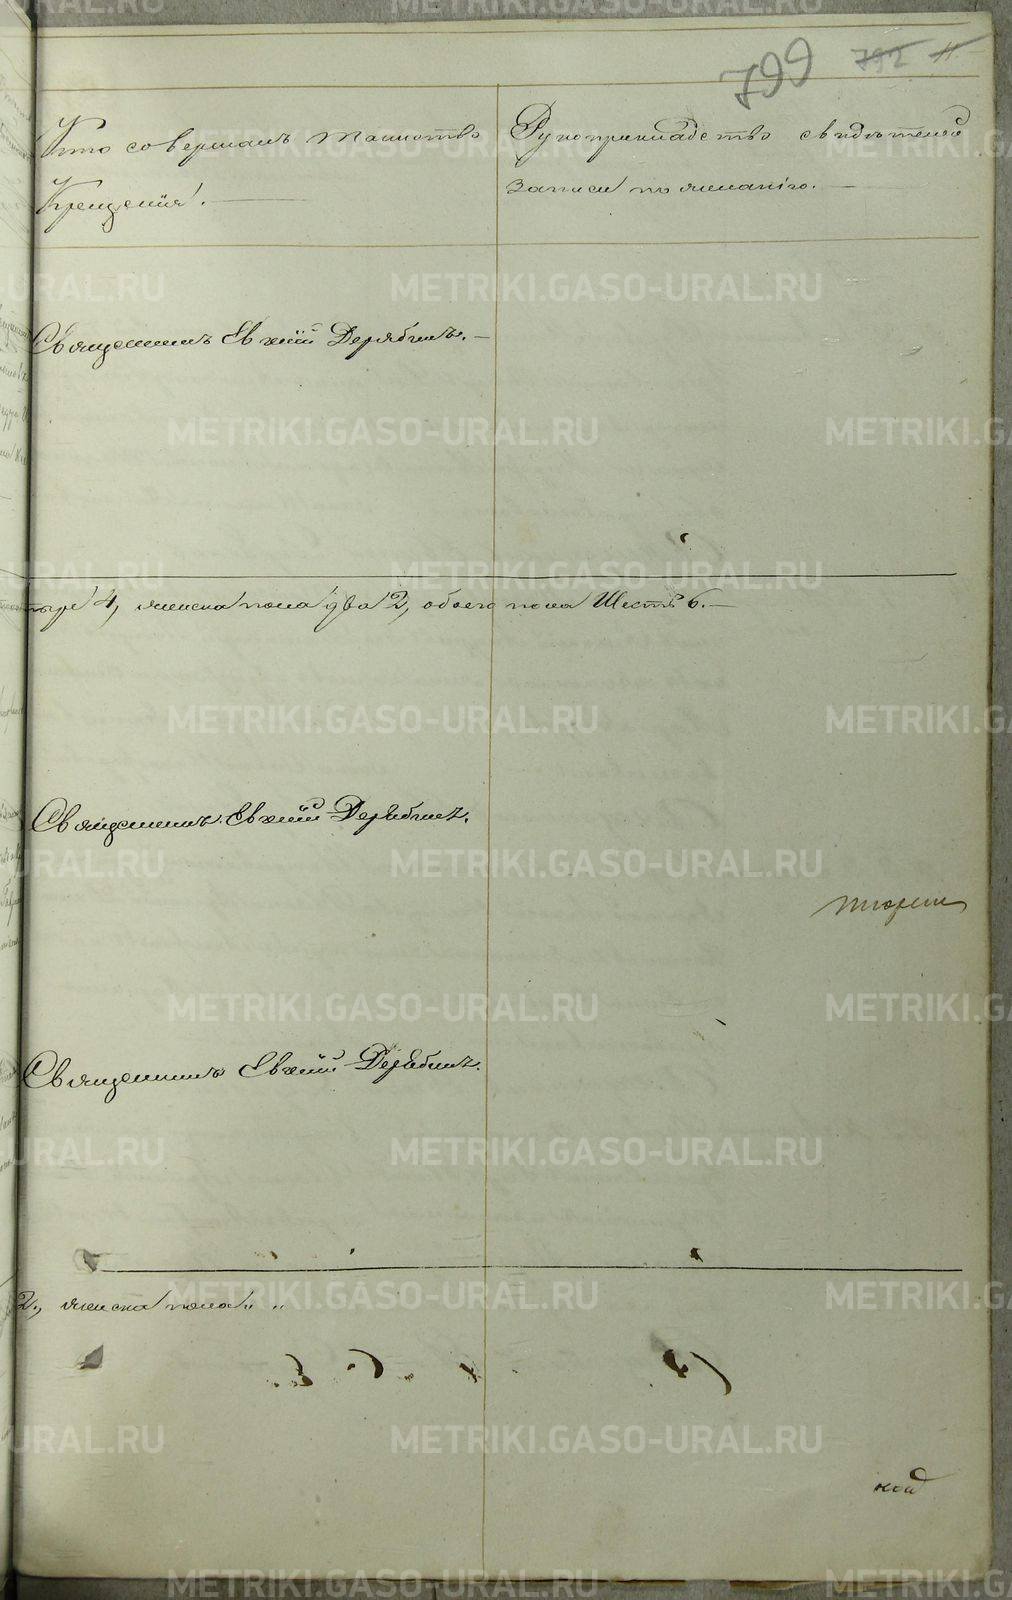 799 792 11
Кто совершалъ таинство
Крещенія.
Рукоприкладство свидѣтелей
записи по желанію.
Священникъ Евхній Дерябинъ.
4, женска пола два 2, обоего пола Шесть 6.
Священникъ Евхній Дерябинъ.
Священникъ Евхній Дерябинъ.
2, женска пола " "
METRIKI.GASO-URAL.RU